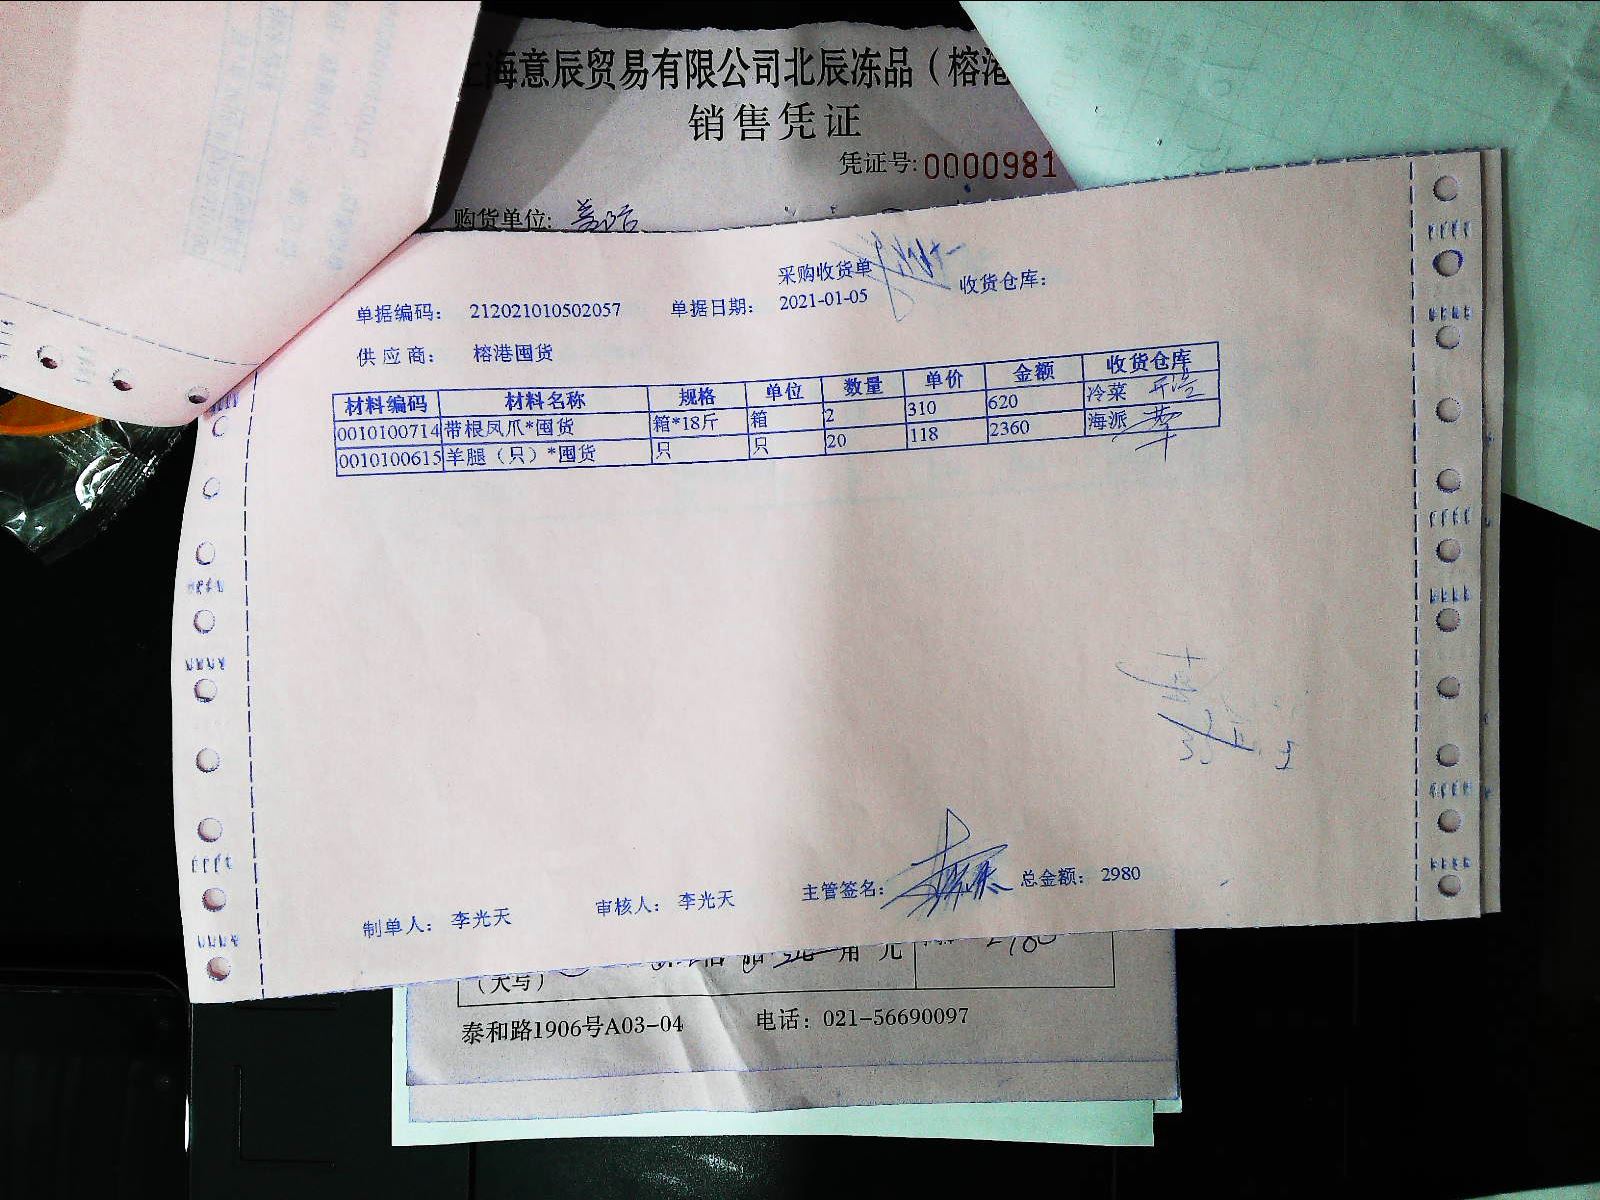 海意辰贸易有限公司北辰冻品（榕港
销售凭证
凭证号:0000981
购货单位:
采购收货单
单据编码： 212021010502057 单据日期： 2021-01-05 收货仓库：
供应商： 榕港囤货
材料编码 材料名称 规格 单位 数量 单价 金额 收货仓库
0010100714 带根凤爪*囤货 箱*18斤 箱 2 310 620 冷菜
0010100615 羊腿（只）*囤货 只 只 20 118 2360 海派
制单人： 李光天 审核人： 李光天 主管签名： 总金额： 2980
（大写） 角 元
泰和路1906号A03-04 电话：021-56690097